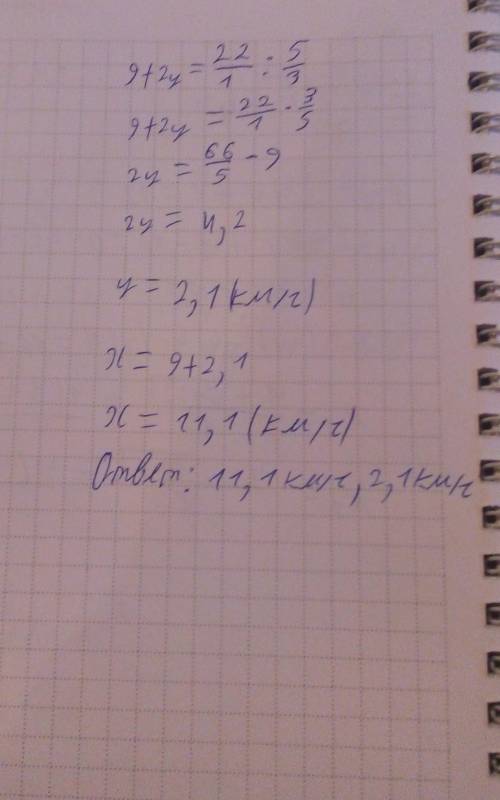 9+2y = 22/1 : 5/3
9+2y = 22/1 · 3/5
2y = 66/5 - 9
2y = 4,2
y = 2,1 (км/ч)
x = 9+2,1
x = 11,1 (км/ч)
Ответ: 11,1 км/ч, 2,1 км/ч